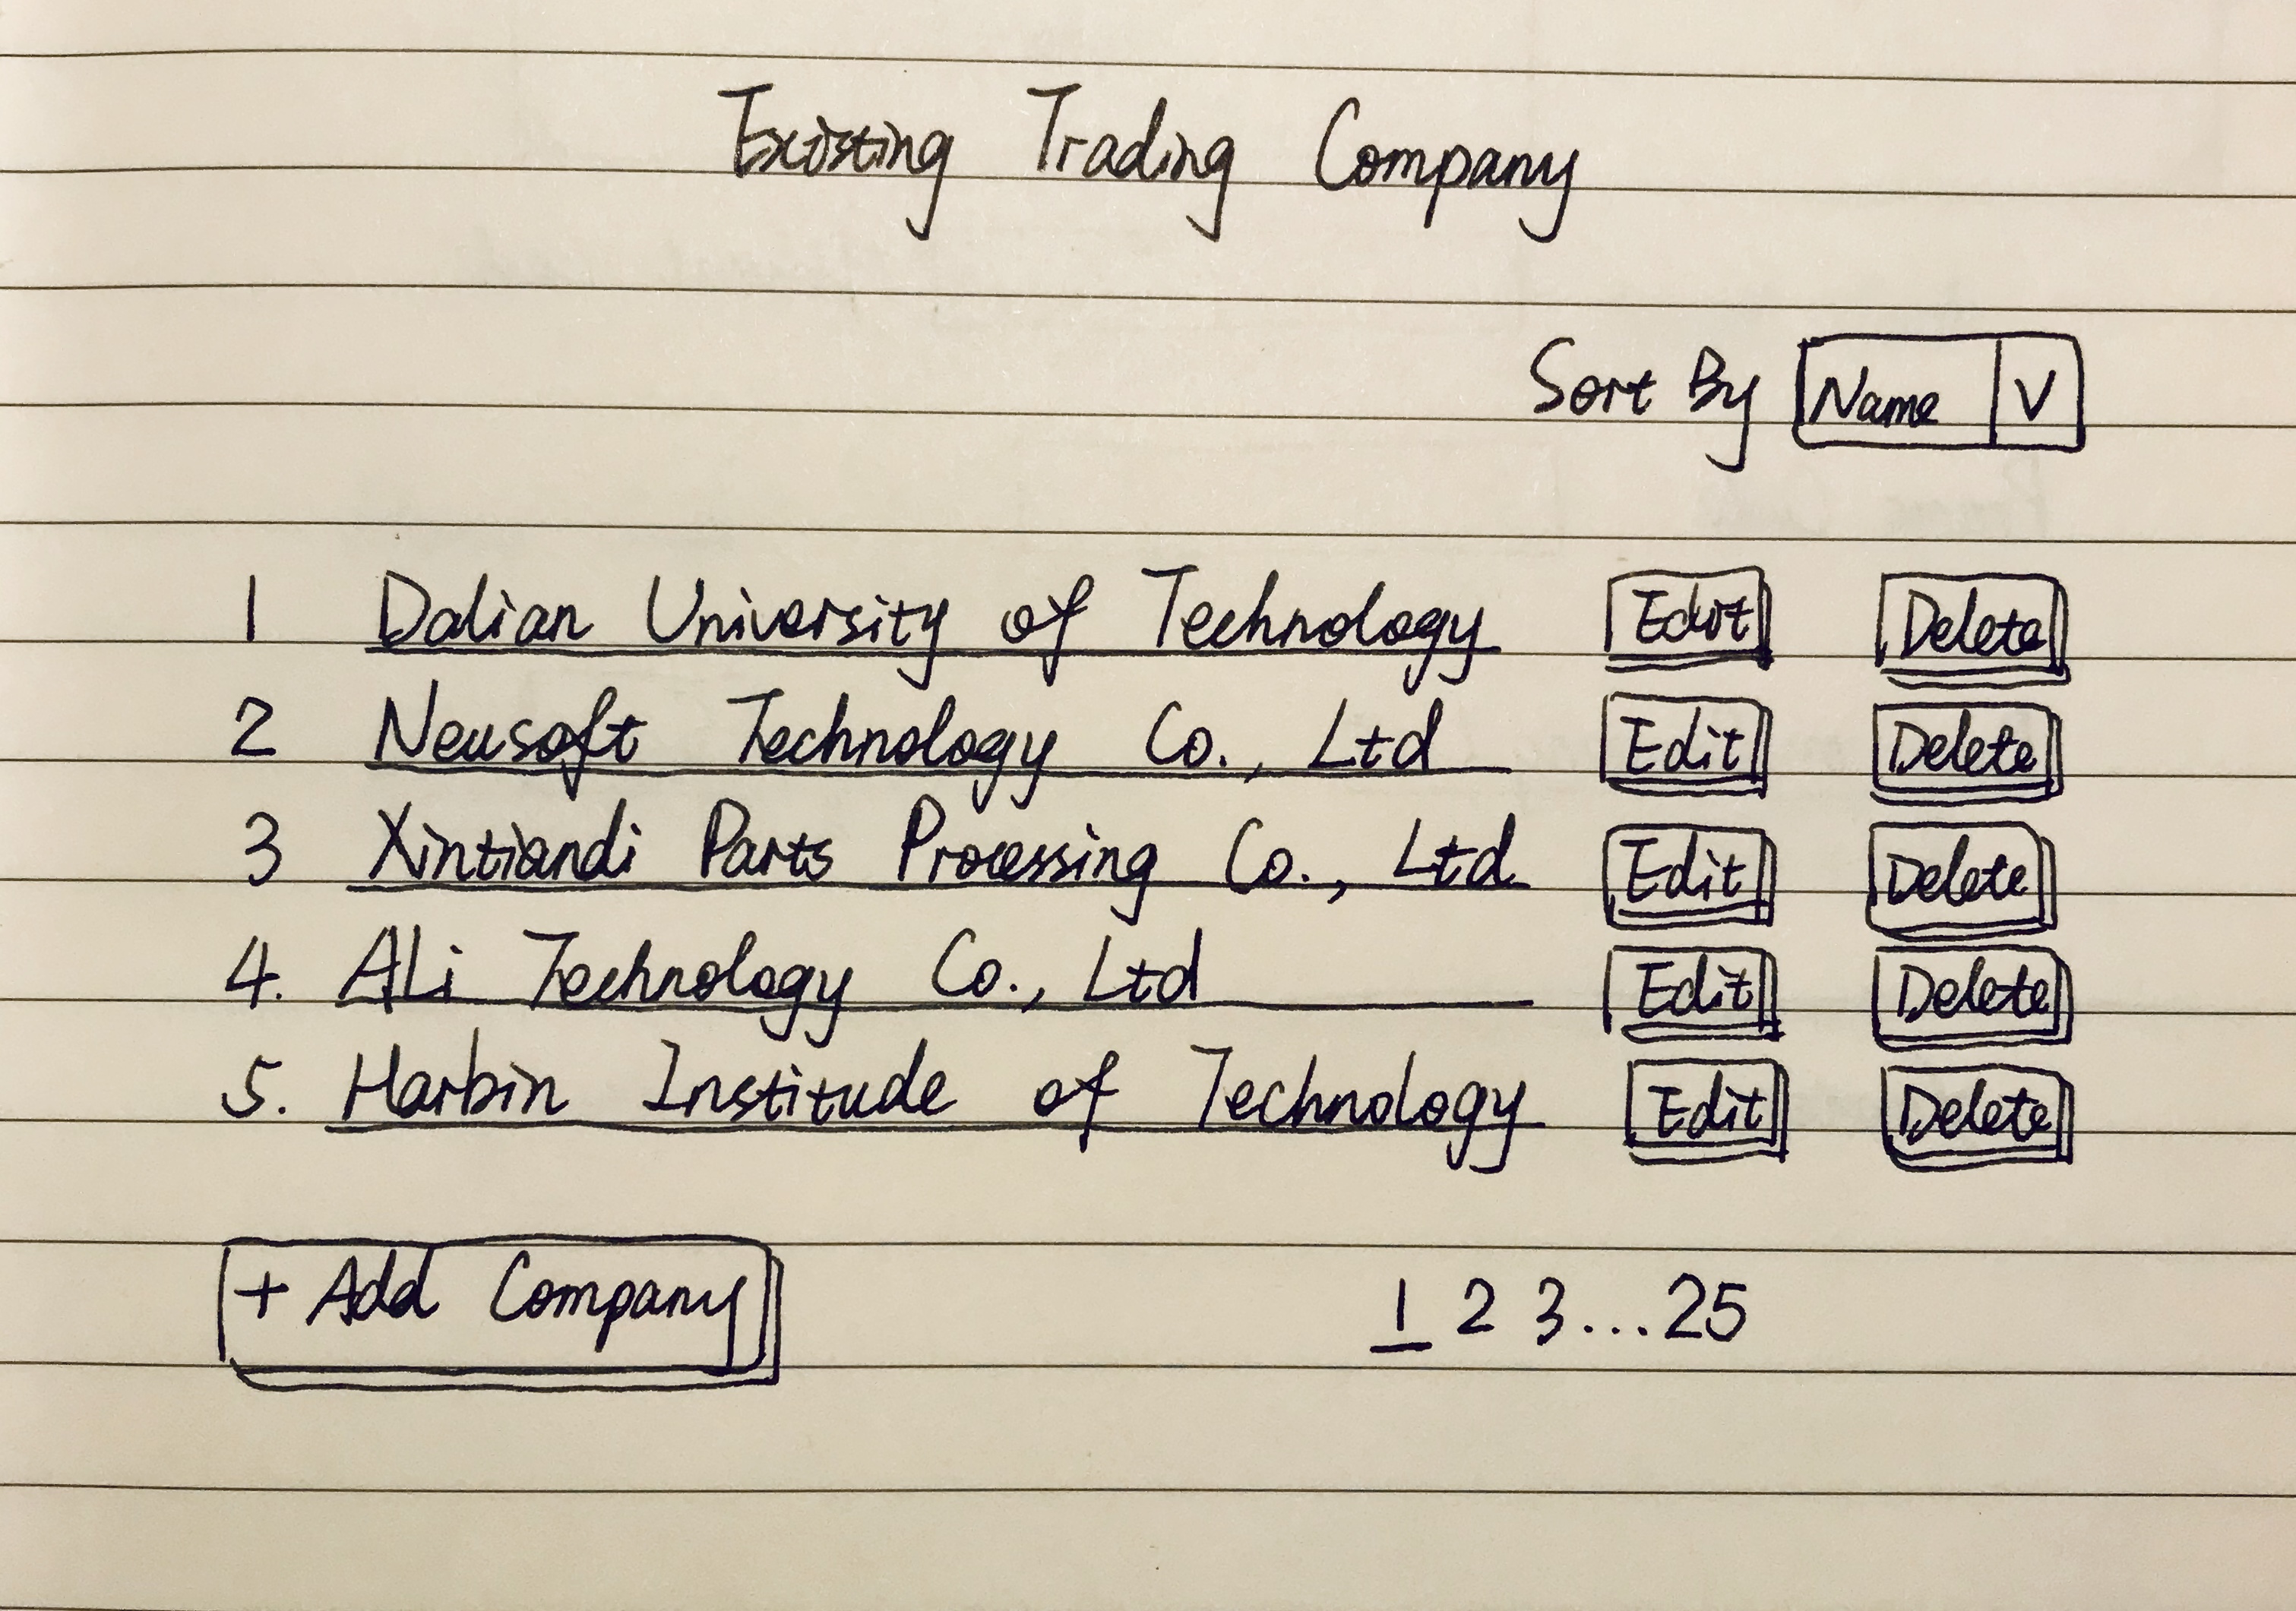 Existing Trading Company
Sort By Name V
1 Dalian University of Technology Edit Delete
2 Neusoft Technology Co., Ltd Edit Delete
3 Xintiandi Parts Processing Co., Ltd Edit Delete
4. ALi Technology Co., Ltd Edit Delete
5. Harbin Institude of Technology Edit Delete
+ Add Company 1 2 3...25